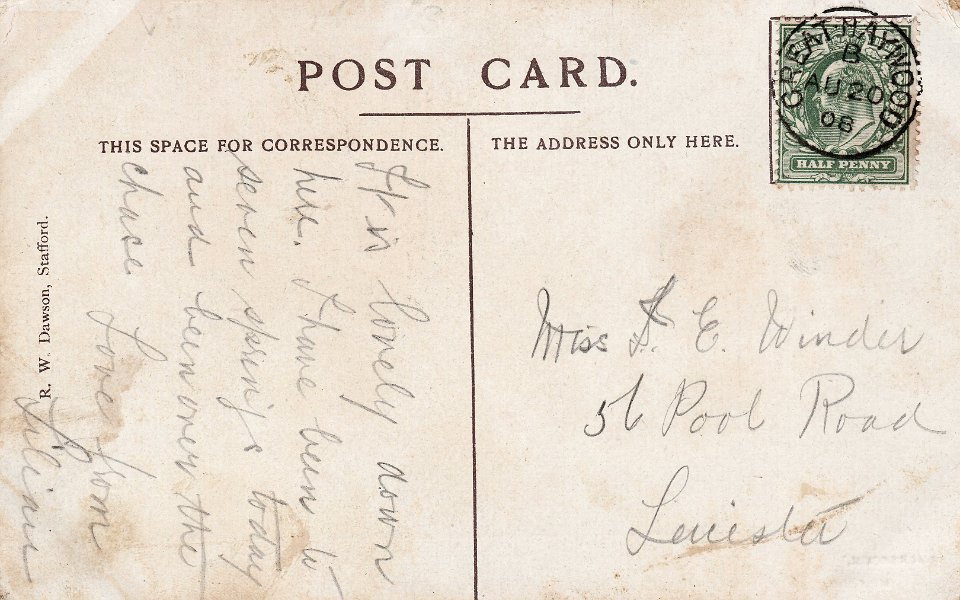 POST CARD.
THIS SPACE FOR CORRESPONDENCE.
THE ADDRESS ONLY HERE.
GREAT·HAYWOOD
B
AU 20
08
HALF PENNY
It is lovely down
here. I have been to
seven springs today
and been over the
chase Love from
Lilian
R. W. Dawson, Stafford.
Miss E. Winder
56 Pool Road
Leicester